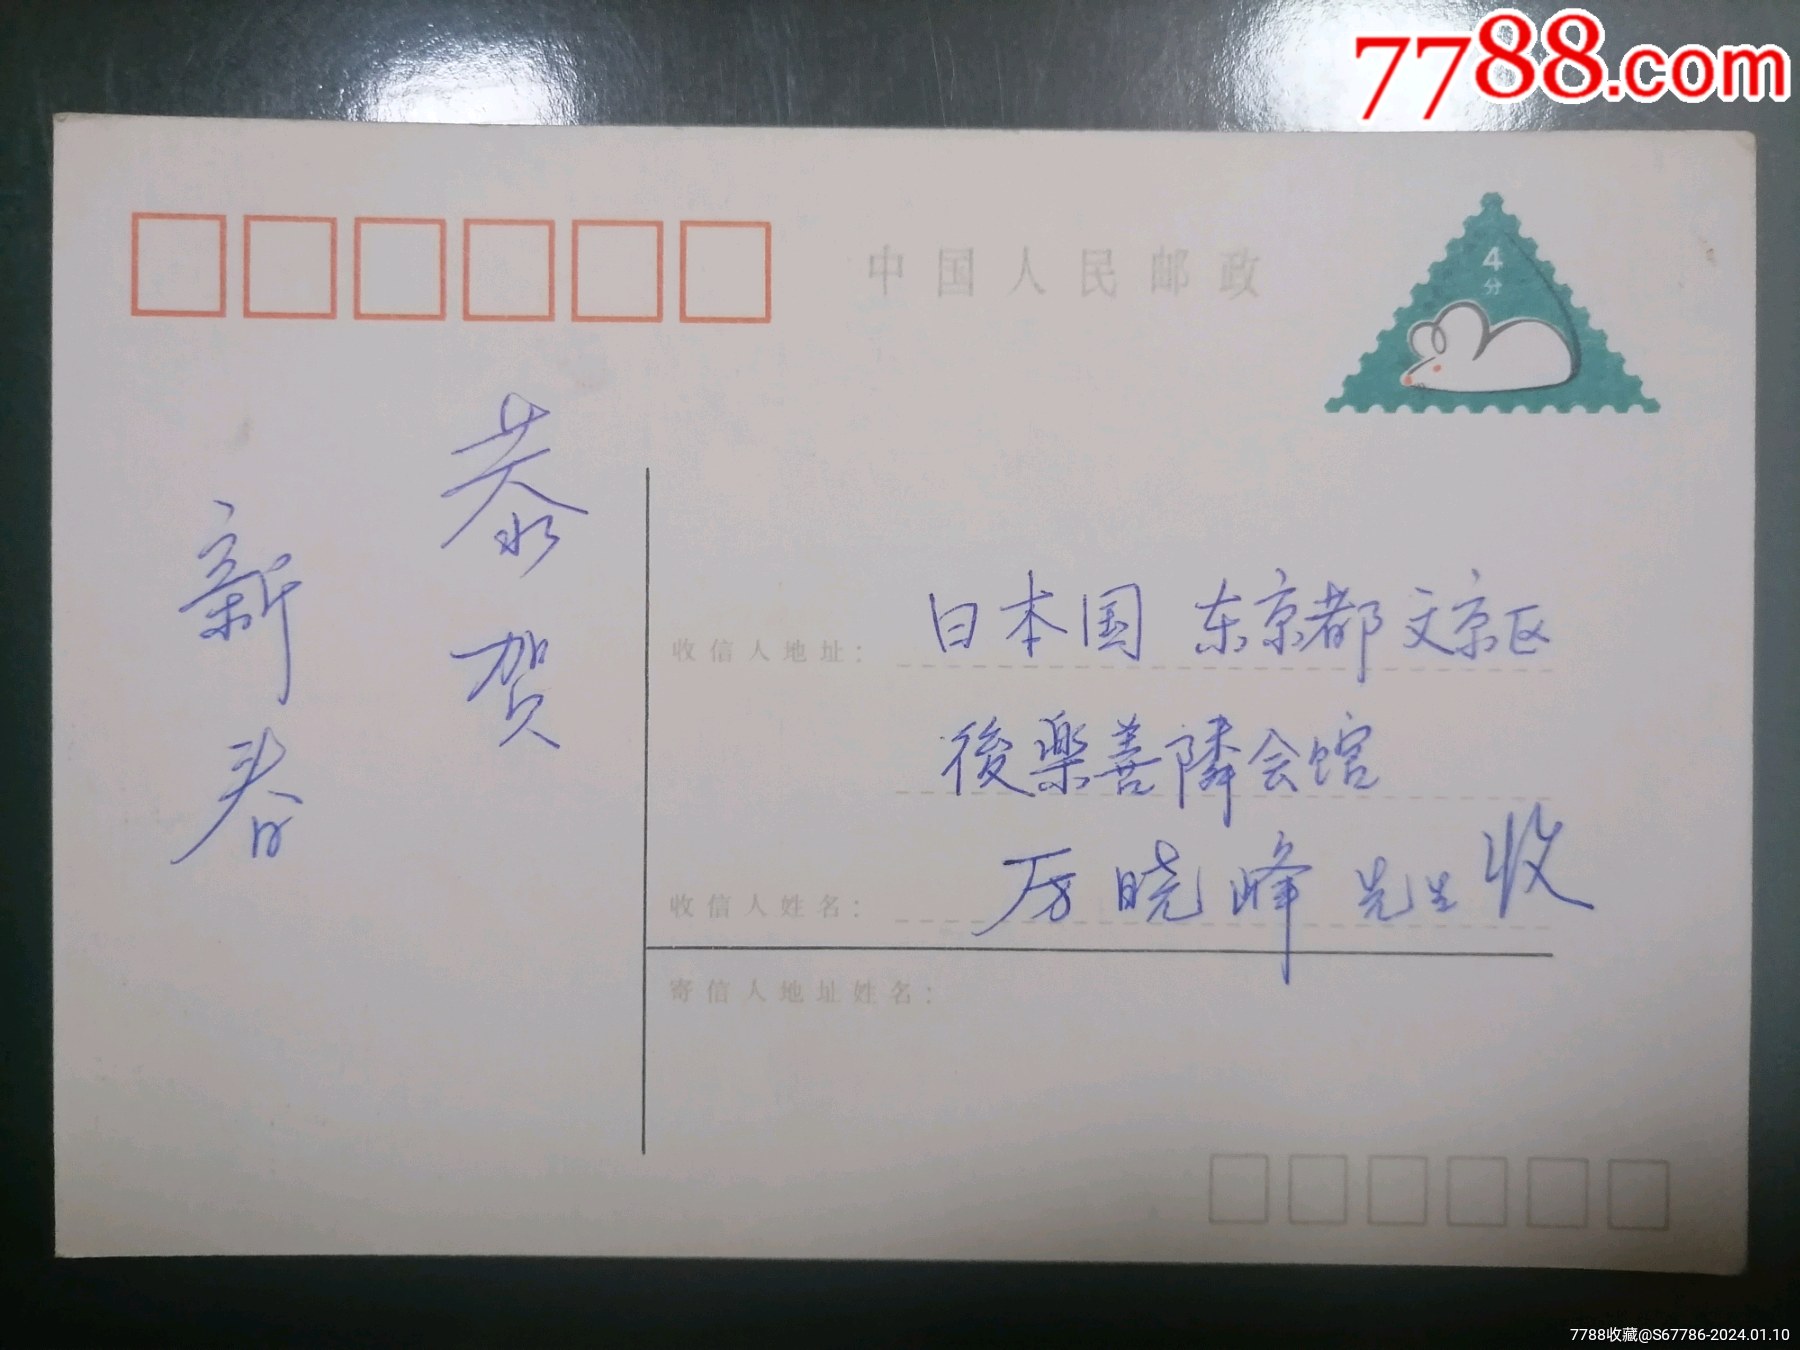 7788.com
中国人民邮政
4
分
恭贺
新春
收信人地址：日本国 东京都 文京区
後楽善隣会馆
收信人姓名：厉晓峰 先生 收
寄信人地址姓名：
7788收藏@S67786-2024.01.10